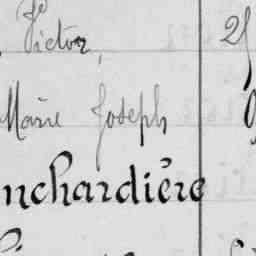 Victor,
Marie Joseph
nchardière